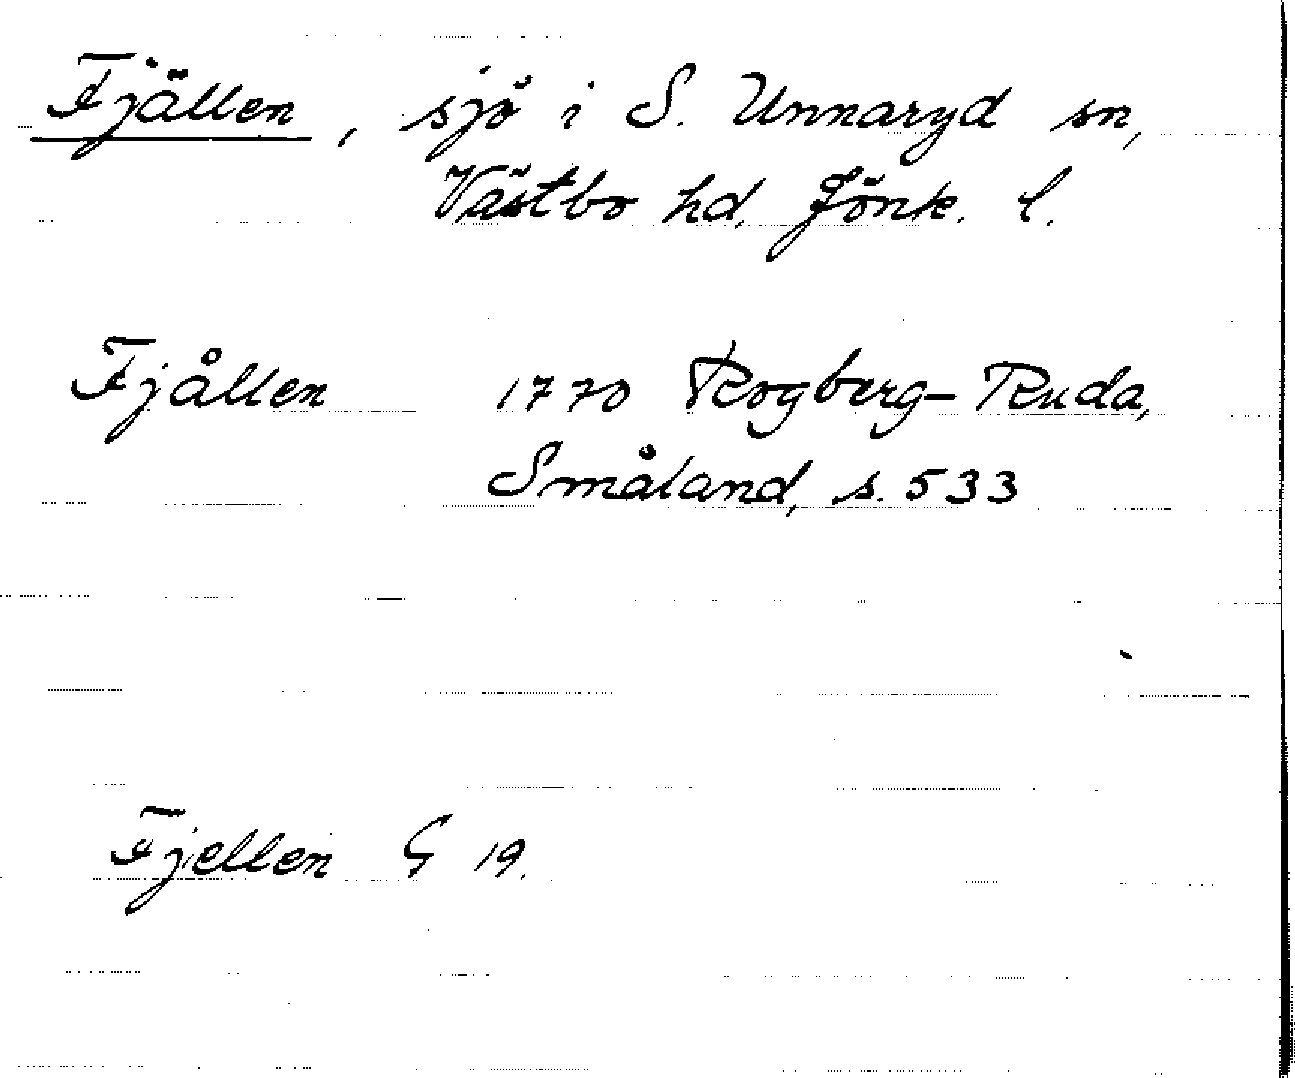 Fjällen, sjö i S. Unnaryd sn,
Västbo hd, Jönk. l.
Fjållen 1770 Rogberg-Ruda,
Småland, s. 533
Fjellen G 19.